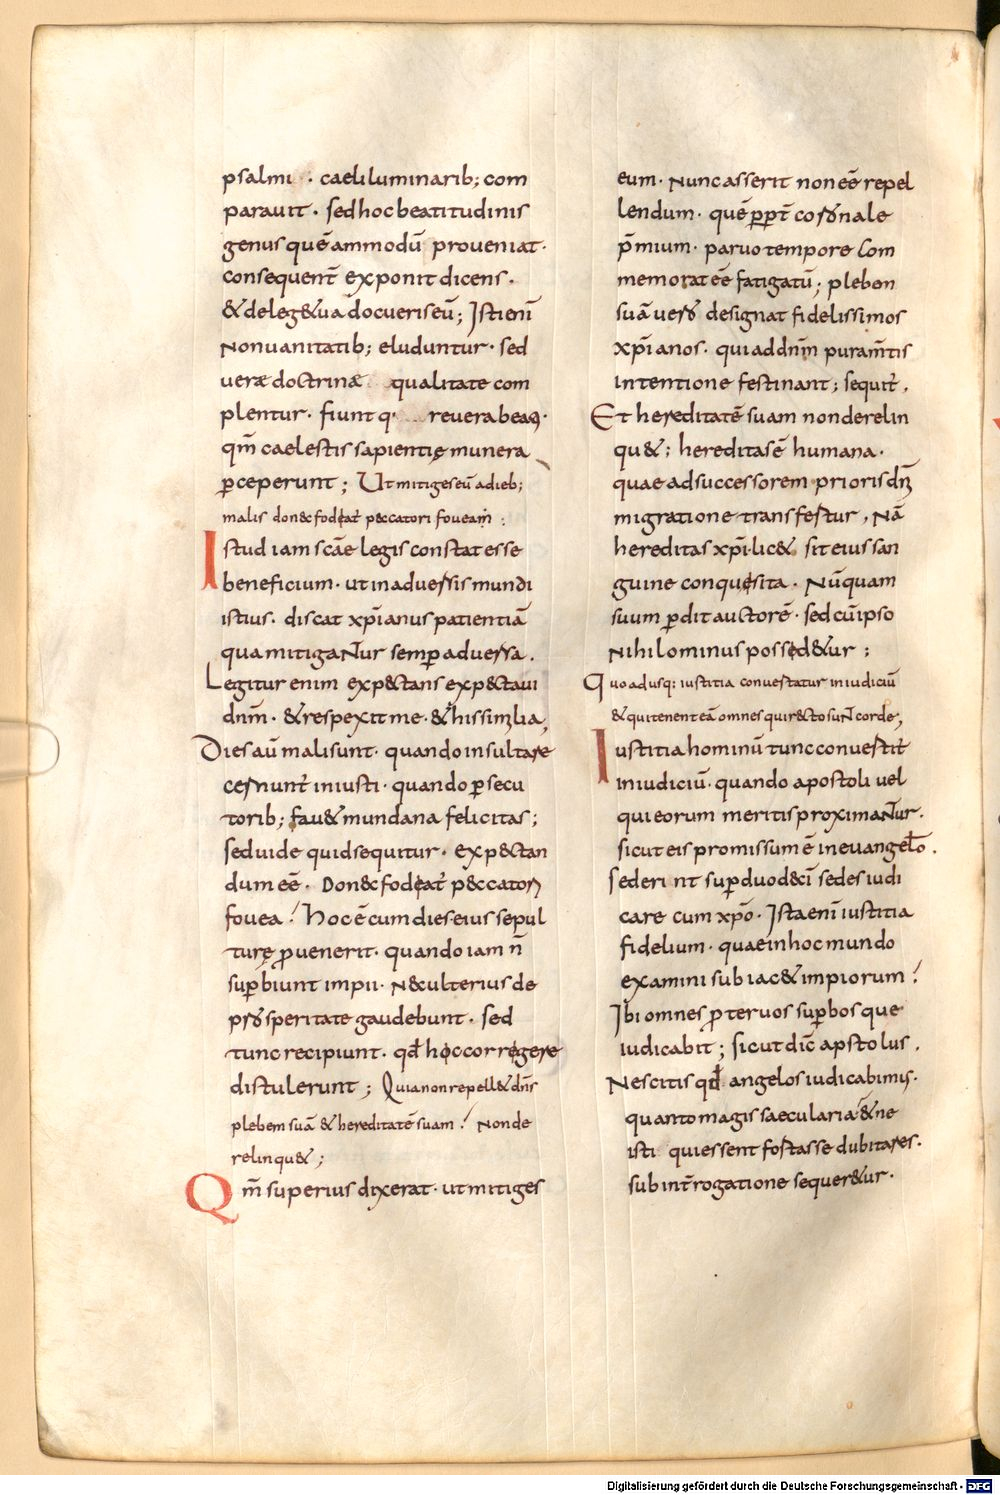 psalmi · caeli luminarib; com
parauit · sed hoc beatitudinis
genus quē ammodū proueniat ·
consequent̄ exponit dicens ·
& de leg& ua docueris eū; Isti eni͂
Non uanitatib; eluduntur · sed
uerae doctrinae qualitate com
plentur · fiunt q· reuera beaꝗ ·
qm̄ caelestis sapientię munera
ꝑceperunt; Ut mitiges eū a dieb;
malis donec fodeat̄ peccatori foueam̄ :
Istud iam scāe legis constat esse
beneficium · ut in aduersis mundi
istius · discat xp̄ianus patientiā
qua mitigaNtur semꝑ aduersa .
Legitur enim expectans expectaui
dnm̄ · & respexit me · & his similia,
Dies aū mali sunt · quando insultare
cernunt̄ iniusti · quando ꝑsecu
torib; fau& mundana felicitas;
sed uide quid sequitur · expectan
dum eē · Donec fodeat̄ peccatori
fouea! Hoc ē cum dies eius sepul
turę ꝓuenerit · quando iam n̄
suꝑbiunt impii · Nec ulterius de
prosperitate gaudebunt · sed
tunc recipiunt · qd̄ hoc corregere
distulerunt; Quia non repell& dn̄s
plebem suā & hereditatē suam! Non de
relinqu&;
Qm̄ superius dixerat · ut mitiges
eum · Nunc asserit non eē repel
lendum · quē ꝑꝑt̄ coronale
p̄mium · paruo tempore com
memorat eē fatigatū; plebem
suā uero designat fidelissimos
xp̄ianos · qui ad dnm̄ puram̄tis
intentione festinant; sequit̄ .
Et hereditatē suam non derelin
qu&; hereditas ē humana ·
quae ad successorem prioris dn̄
migratione transfertur, Nā
hereditas xp̄i · lic& sit eius san
guine conquesita · Nūquam
suum ꝑdit auctorē · sed cū ipso
Nihilominus possed&ur :
Quo adusq: iustitia conuertatur in iudiciū
& qui tenent eā omnes qui recto suNt corde,
Iustitia hominū tunc conuertit̄
in iudiciū · quando apostoli uel
qui eorum meritis proximaNtur ·
sicut eis promissum ē in euangelio .
sederint suꝑ duodecī sedes iudi
care cum xp̄o · Ista eni͂ iustitia
fidelium · quae in hoc mundo
examini subiac& impiorum!
Ibi omnes ꝓteruos suꝑbosque
iudicabit; sicut dic̄ apstolus .
Nescitis qd̄ angelos iudicabimus ·
quanto magis saecularia & ne
isti qui essent fortasse dubitares ·
sub int̄rogatione sequer&ur ·
Digitalisierung gefördert durch die Deutsche Forschungsgemeinschaft - DFG